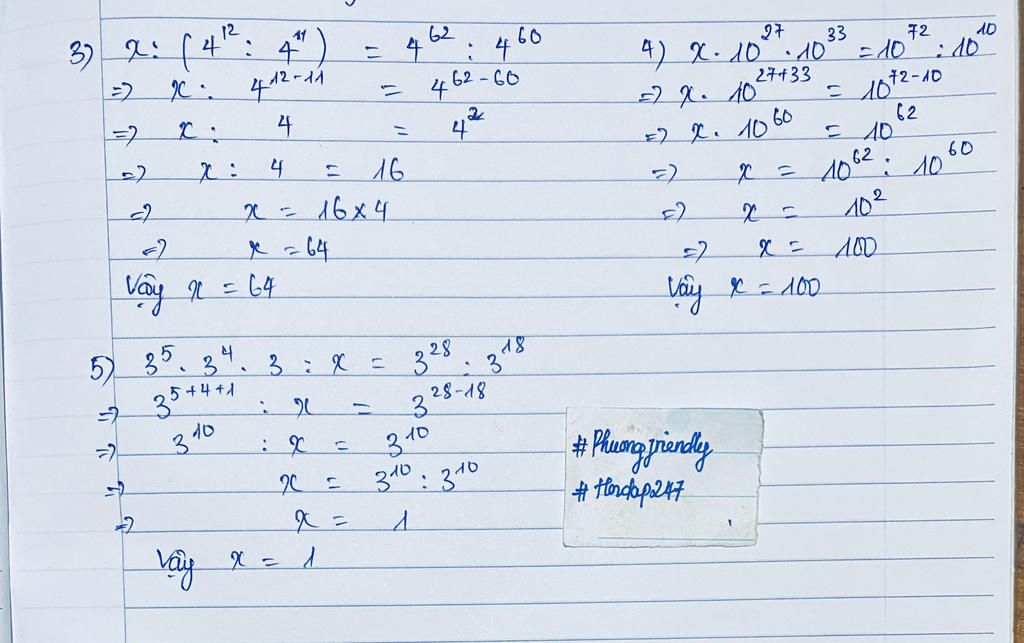 3) x : (4^12 : 4^11) = 4^62 : 4^60
=> x : 4^12-11 = 4^62-60
=> x : 4 = 4^2
=> x : 4 = 16
=> x = 16 x 4
=> x = 64
Vậy x = 64
4) x . 10^27 . 10^33 = 10^72 : 10^10
=> x . 10^27+33 = 10^72-10
=> x . 10^60 = 10^62
=> x = 10^62 : 10^60
=> x = 10^2
=> x = 100
Vậy x = 100
5) 3^5 . 3^4 . 3 : x = 3^28 : 3^18
=> 3^5+4+1 : x = 3^28-18
=> 3^10 : x = 3^10
=> x = 3^10 : 3^10
=> x = 1
Vậy x = 1
#Phuongfriendly
#Hoidap247